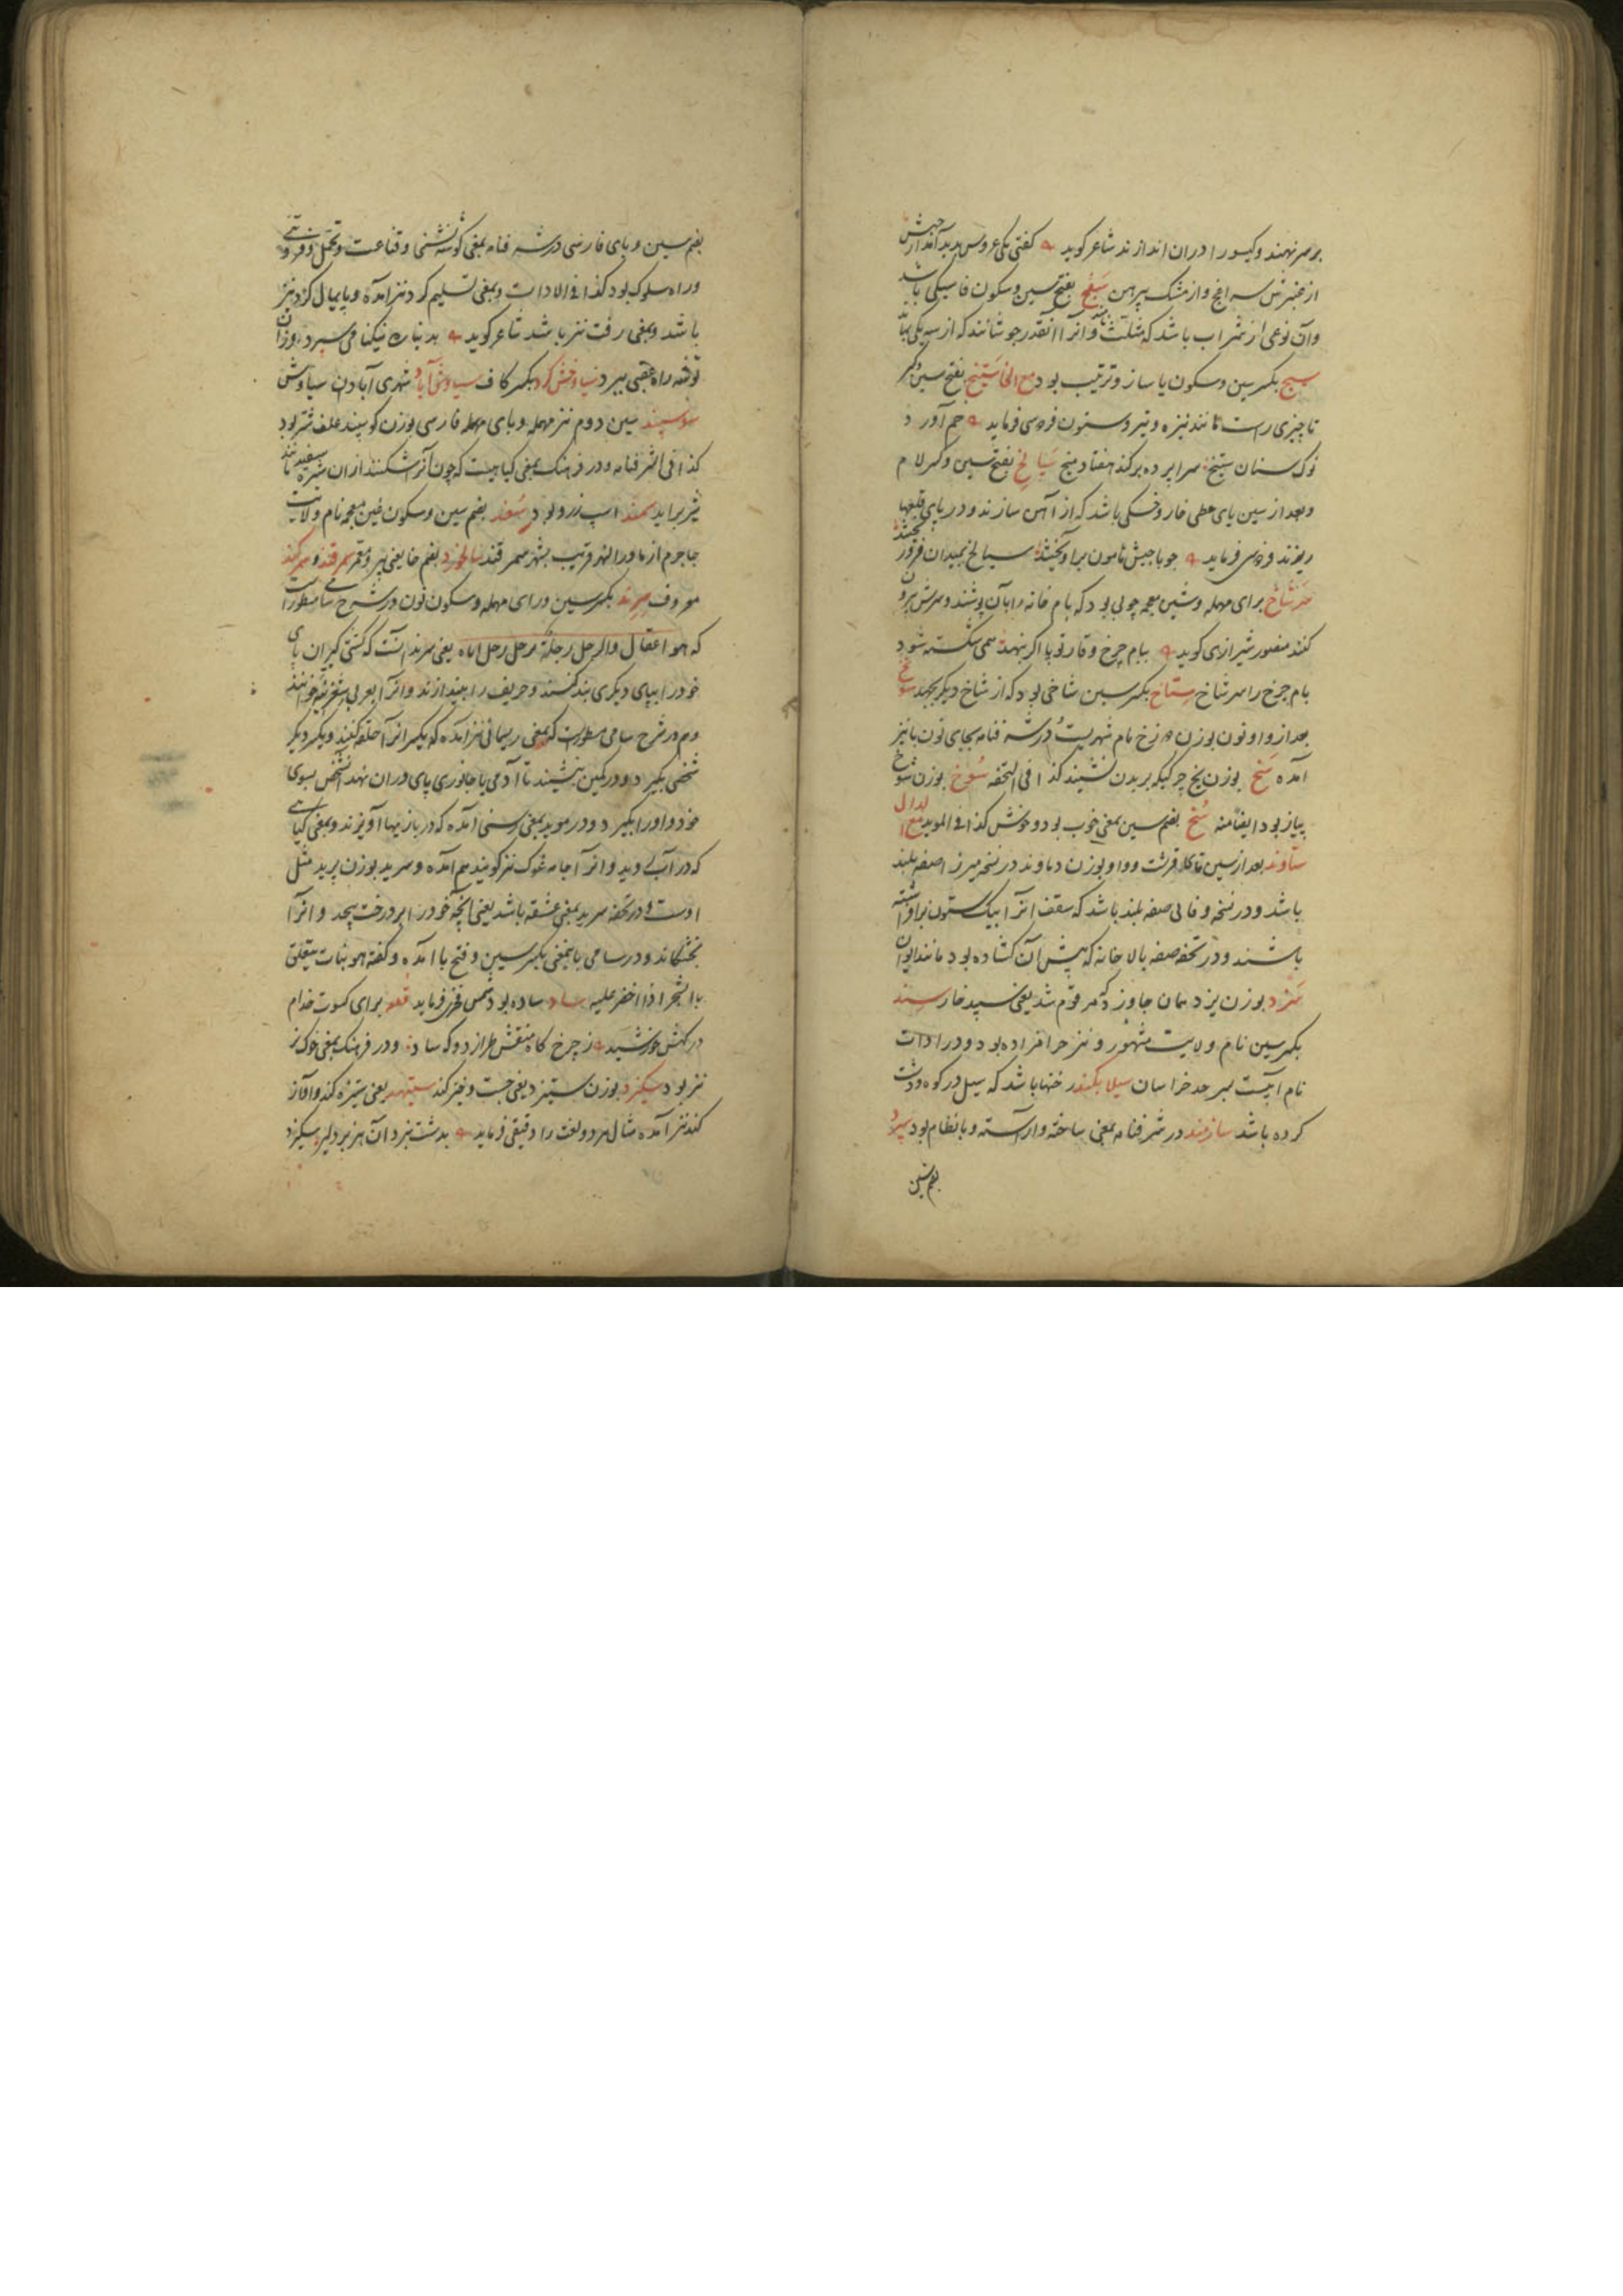 بر سر نهند و کیسو را دران اندازند شاعر کوید کفتی یکی عروس پدید آمد از حبش
از عنبرش سراغج و از مشک پیرهن سیفج بفتح سین و سکون فا سیکی باشد
وان نوعی از شراب باشد که مثلث باشد و آنرا آنقدر جوشانند که از سه یکی بماند
سیج بکسر سین و سکون یا ساز و ترتیب بود مع الخا ستیخ بفتح سین و کسر
تا چیزی راست مانند نیزه و تیر و ستون فردوسی فرماید خم آورد
نوک سنان ستیخ سراپرده برکند هفتاد میخ سیالخ بفتح سین و کسر لام
و بعد از سین یای حطی خار و خسکی باشد که از آهن سازند و در پای قلعها
ریزند فردوسی فرماید چو با جیش هامون برآویختند سیالخ بمیدان فرو ریختند
سرشاخ برای مهمله و شین معجمه چوبی بود که بام خانه را بآن پوشند و سرش بیرون
کنند منصور شیرازی کوید ببام چرخ وقار تو پا اکر بنهد همی شکسته شود
بام چرخ را سرشاخ ستاخ بکسر سین شاخی بود که از شاخ دیکر بجهد
بعد از واو نون بوزن دوزخ نام شهریست و در شرفنامه بجای نون با نیز
آمده سخ بوزن یخ چرکیکه بر بدن نشیند کذا فی التحفه سوخ بوزن شوخ
پیاز بود ایضا منه سخ بضم سین بمعنی خوب بود و خوش کذا فی الموید مع الدال
ستاوند بعد از سین تا کلا قرشت و واو بوزن دماوند در نسخه میرزا صفه بلند
باشد و در نسخه وفائی صفه بلند باشد که سقف آنرا بیک ستون برافراشته
باشند و در تحفه صفه بالا خانه که پیش آن کشاده بود مانند ایوان
سزد بوزن یزد همان جاورد که مرقوم شد یعنی سپید خار سند
بکسر سین نام ولایت مشهور و نیز حرامزاده بود و در ادات
نام آبیست بسر حد خراسان سیلابکند رخنها باشد که سیل در کوه و دشت
کرده باشد سازمند در شرفنامه بمعنی ساخته و آراسته و با نظام بود سپرد
بضم سین
بضم سین و بای فارسی در شرفنامه بمعنی کوشه نشینی و قناعت و تحمل و فروتنی
و راه سلوک بود کذا فی الادات و بمعنی تسلیم کرد نیز آمده و پایمال کرد نیز
باشد و بمعنی رفت نیز باشد شاعر کوید بدنیا ره نیکنامی سپرد وزان
توشه راه عقبی ببرد سیاوخش کرد بکسر کاف سیاوش آباد شهری آبادان سیاوش
سوسپند سین دوم نیز مهمله و بای مهمله فارسی بوزن کوسپند علف شتر بود
کذا فی الشرفنامه و در فرهنک بمعنی کیاهیست که چون آنرا بشکنند از ان شیره سفید مانند
شیر براید سمند اسپ زرد بود سغد بضم سین و سکون غین معجمه نام ولایت
ما وراء النهر قریب بشهر سمرقند سالخورد بضم خا یعنی پیر و معمر سمرقند و سمرکند
معروف سرند بکسر سین و رای مهمله و سکون نون در شرح سامی مسطور است
که هو اعقال والرجل رجله یعنی سرند آنست که کشتی کیران پای
خود را بپای دیکری بند کنند و حریف را بیندازند و آنرا بعربی شغزبیه خوانند
و هم در شرح سامی مسطور است که بمعنی ریسمانی نیز آمده که یکسر آنرا حلقه کنند و یکسر دیکر
شخصی بکیرد و در کمین بنشیند تا آدمی یا جانوری پای دران نهد آنشخص بسوی
خود او را بکیرد و در موید بمعنی رسنی آمده که در بازیها آویزند و بمعنی کیاهی
که در آب روید و آنرا جامه غوک نیز کویند هم آمده و سرید بوزن برید مثل
اوست و در تحفه سرید بمعنی عشقه باشد یعنی آنچه خود را بر درخت پیچد و آنرا
بخشکاند و در سامی باینمعنی بکسر سین و فتح با آمده و کفته هو نبات یتعلق
بالشجر اذا اخضر علیه ساد ساده بود شمس فخری فرماید قطعه برای کسوت خدام
درکهش خورشید ز چرخ کاه منقش طراز دو که ساد و در فرهنک بمعنی خوک نر
نیز بود سکیزد بوزن ستیزد یعنی جست و خیز کند ستیهد یعنی ستیزه کند و آواز
کند نیز آمده مثال هر دو لغت را دقیقی فرماید بدشت نبرد آن هزبر دلیر سکیزد